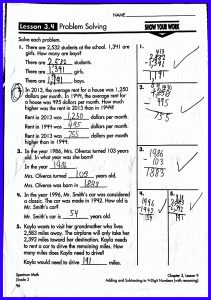 NAME
Lesson 3.4 Problem Solving
SHOW YOUR WORK
Solve each problem.
1. There are 2,532 students at the school. 1,341 are
girls. How many are boys?
There are 2,532 students.
There are 1,341 girls.
There are 1,191 boys.
2. In 2013, the average rent for a house was 1,250
dollars per month. In 1944, the average rent for
a house was 495 dollars per month. How much
higher was the rent in 2013 than in 1944?
Rent in 2013 was 1,250 dollars per month.
Rent in 1944 was 495 dollars per month.
Rent in 2013 was 755 dollars per month
higher than in 1944.
3. In the year 1986, Mrs. Olveras turned 103 years
old. In what year was she born?
In the year 1986
Mrs. Olveras turned 103 years old.
Mrs. Olveras was born in 1883.
4. In the year 1996, Mr. Smith's car was considered
a classic. The car was made in 1942. How old is
Mr. Smith's car?
Mr. Smith's car is 54 years old.
5. Kayla wants to visit her grandmother who lives
2,583 miles away. The airplane will only take her
2,392 miles toward her destination. Kayla needs
to rent a car to drive the remaining miles. How
many miles does Kayla need to drive?
Kayla would need to drive 191 miles.
1.
1,341
1,191
2.
495
755
3.
1986
103
1883
4.
1996
1942
54
5.
191
Spectrum Math
Grade 3
Chapter 3, Lesson 4
Adding and Subtracting to 4-Digit Numbers (with renaming)